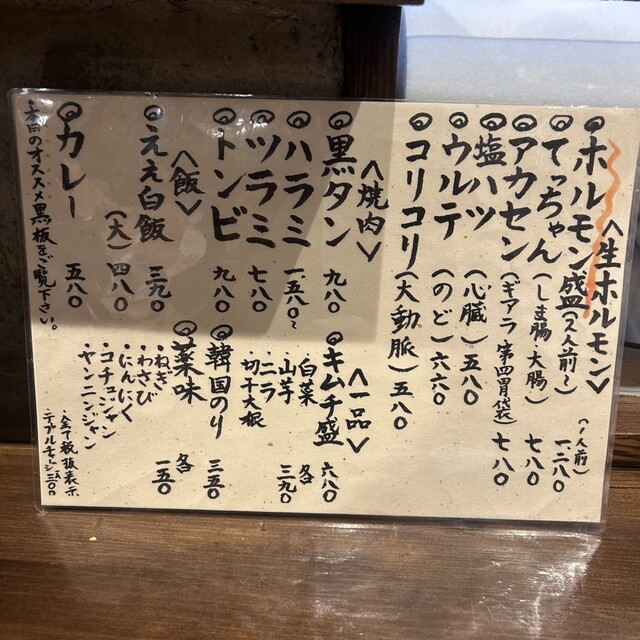 〈生ホルモン〉
◎ホルモン盛(2人前〜) (1人前) 一二八〇
◎てっちゃん(しま腸、大腸) 七八〇
◎アカセン(ギアラ 第四胃袋) 七八〇
◎塩ハツ(心臓) 五八〇
◎ウルテ(のど) 六六〇
◎コリコリ(大動脈) 五八〇
〈焼肉〉
◎黒タン 九八〇
◎ハラミ 一五八〇〜
◎ツラミ 七八〇
◎トンビ 九八〇
〈一品〉
◎キムチ盛 六八〇
・白菜 各
・山芋 三九〇
・ニラ
・切干大根
◎韓国のり 三五〇
◎薬味 各
・ねぎ 一五〇
・わさび
・にんにく
・コチュジャン
・ヤンニンジャン
〈飯〉
◎ええ白飯 三九〇
(大) 四八〇
◎カレー 五八〇
本日のオススメ黒板をご覧下さい。
・全て税抜表示
・テーブルチャージ三〇〇